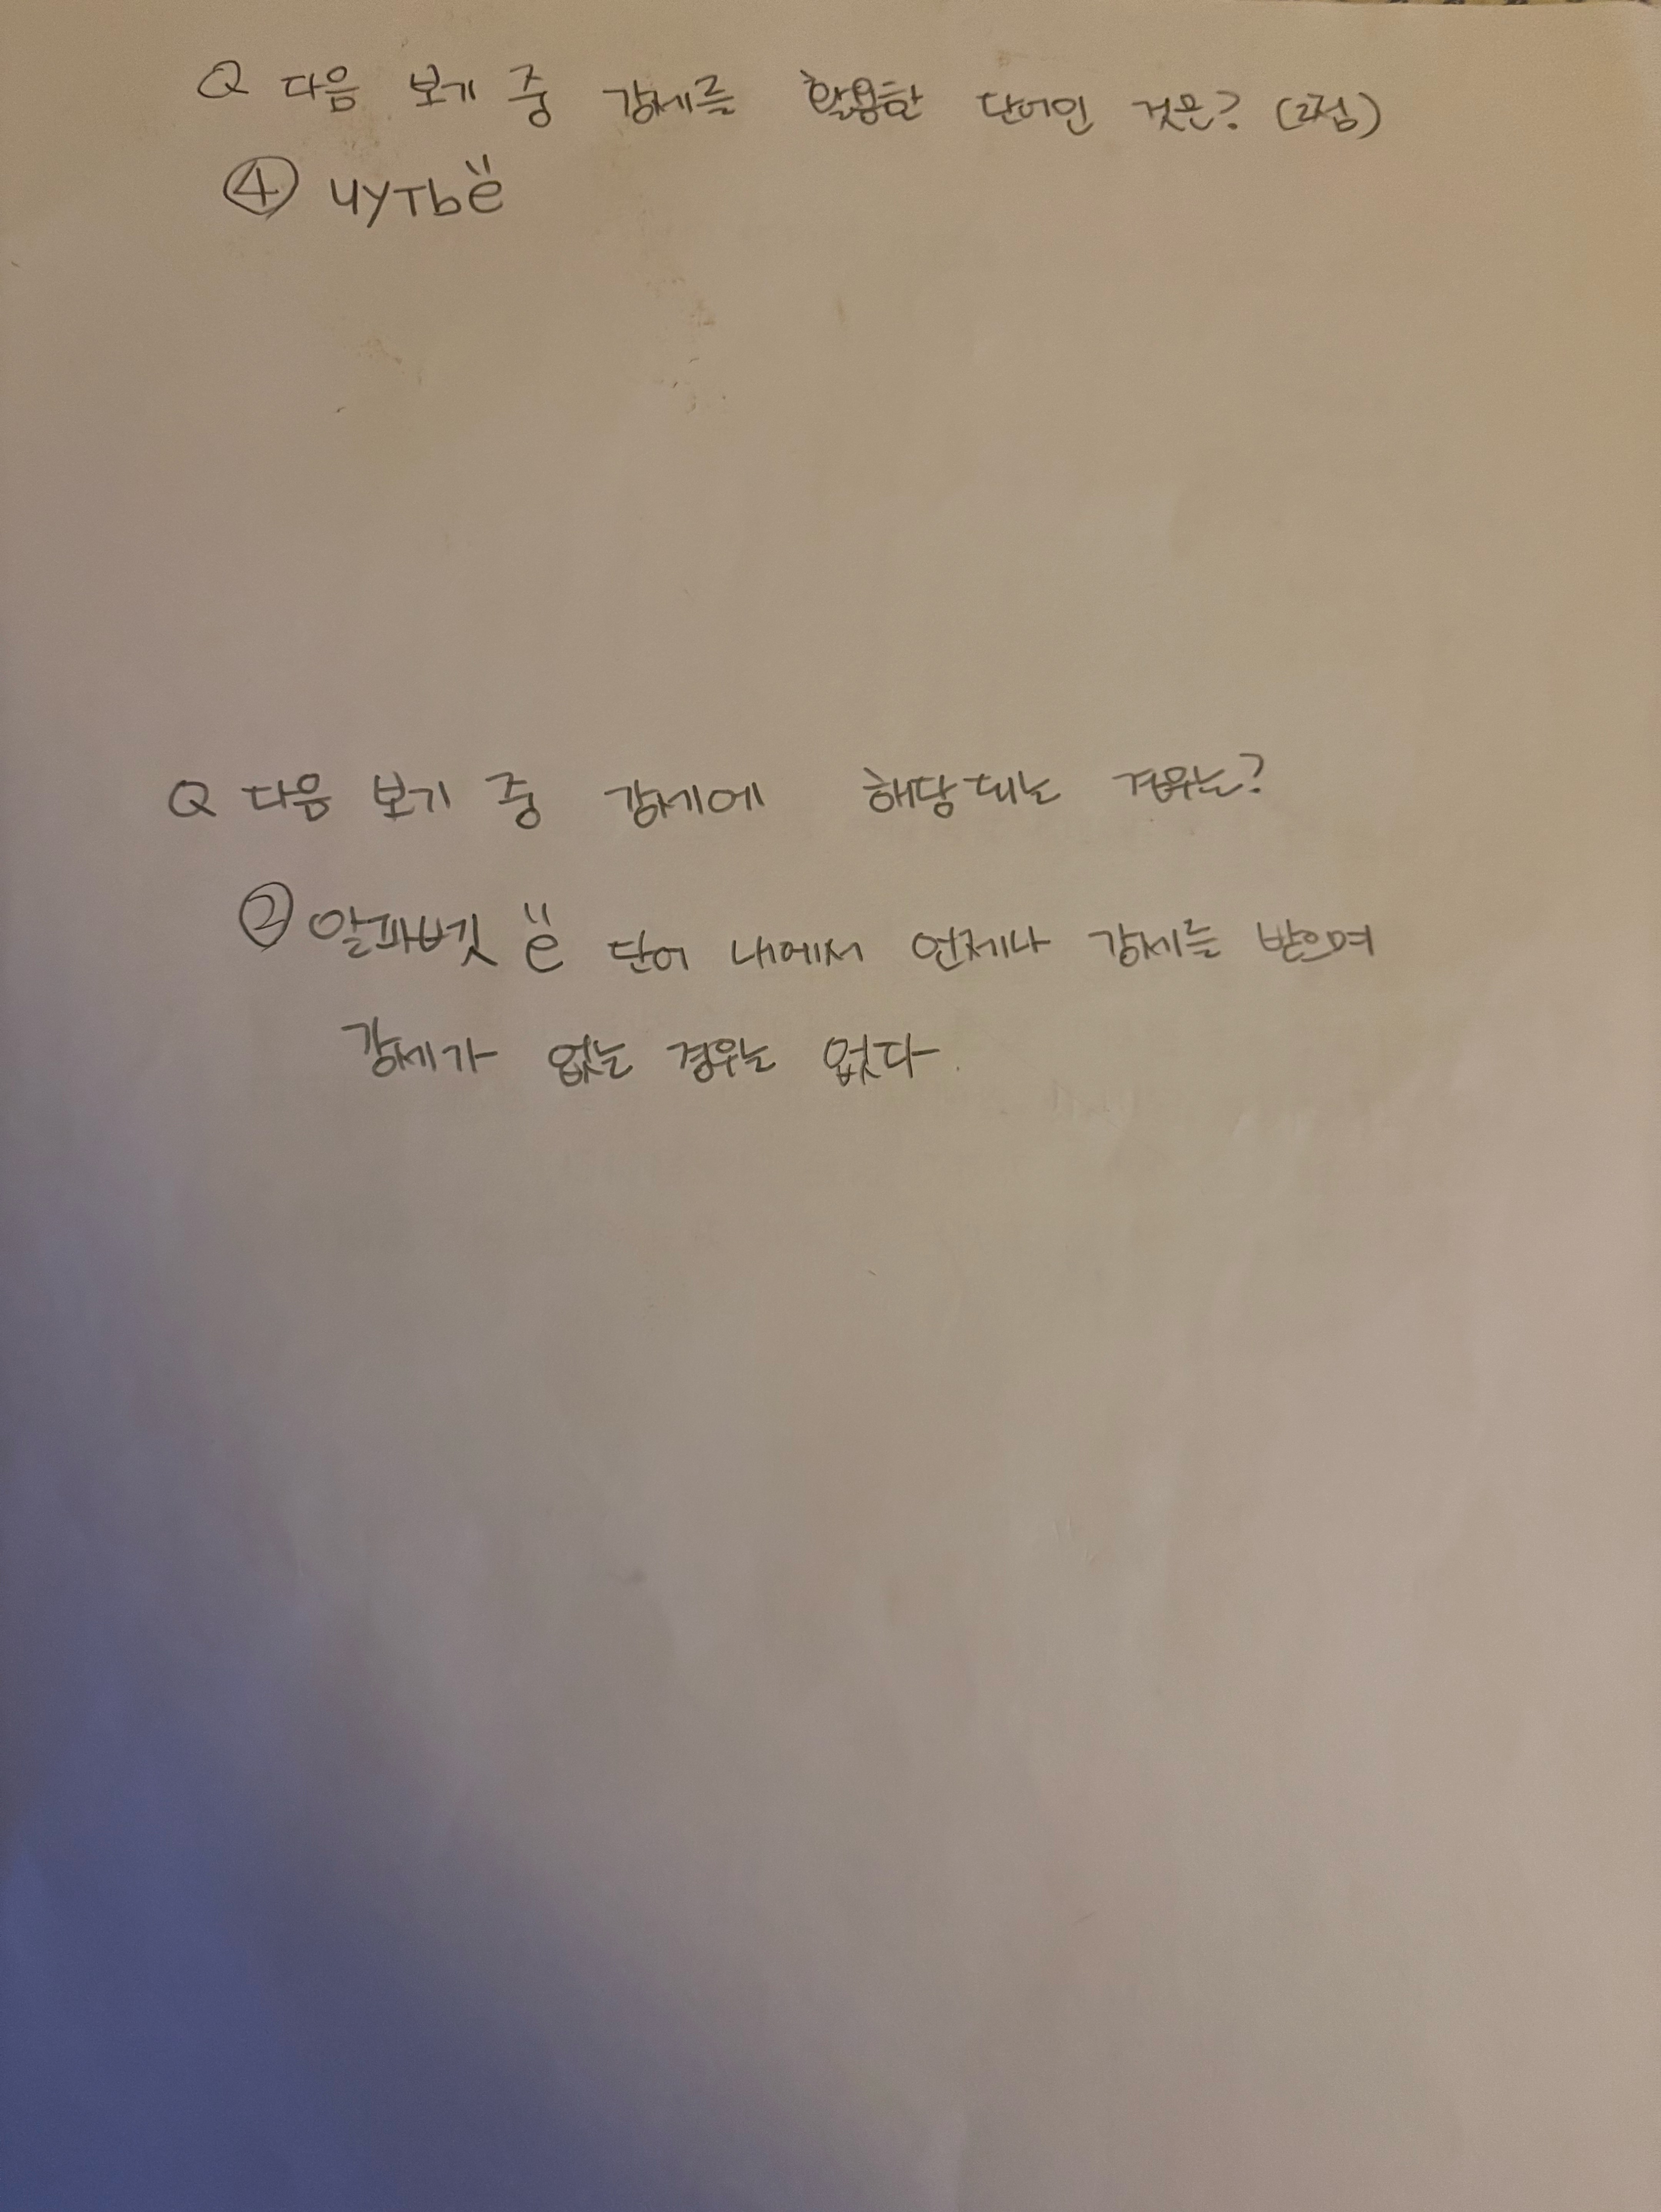 Q 다음 보기 중 강세를 활용한 단어인 것은? (2점)
④ чутьё
Q 다음 보기 중 강세에 해당되는 경우는?
② 알파벳 ё 단어 내에서 언제나 강세를 받으며
강세가 없는 경우는 없다.